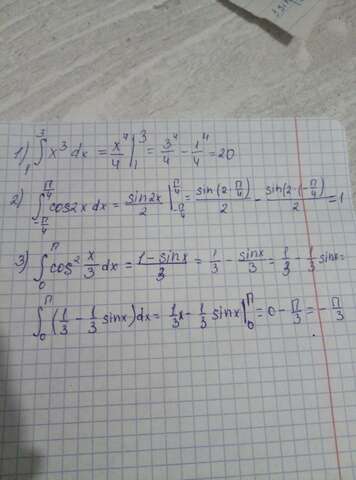 1) ∫₁³ x³ dx = x⁴/4 |₁³ = 3⁴/4 - 1⁴/4 = 20
2) ∫_{-π/4}^{π/4} cos2x dx = sin2x/2 |_{-π/4}^{π/4} = sin(2·π/4)/2 - sin(2·(-π/4)/2 = 1
3) ∫₀^π cos² x/3 dx = 1-sinx/3 = 1/3 - sinx/3 = 1/3 - 1/3 sinx =
∫₀^π (1/3 - 1/3 sinx)dx = 1/3x - 1/3 sinx |₀^π = 0 - π/3 = - π/3